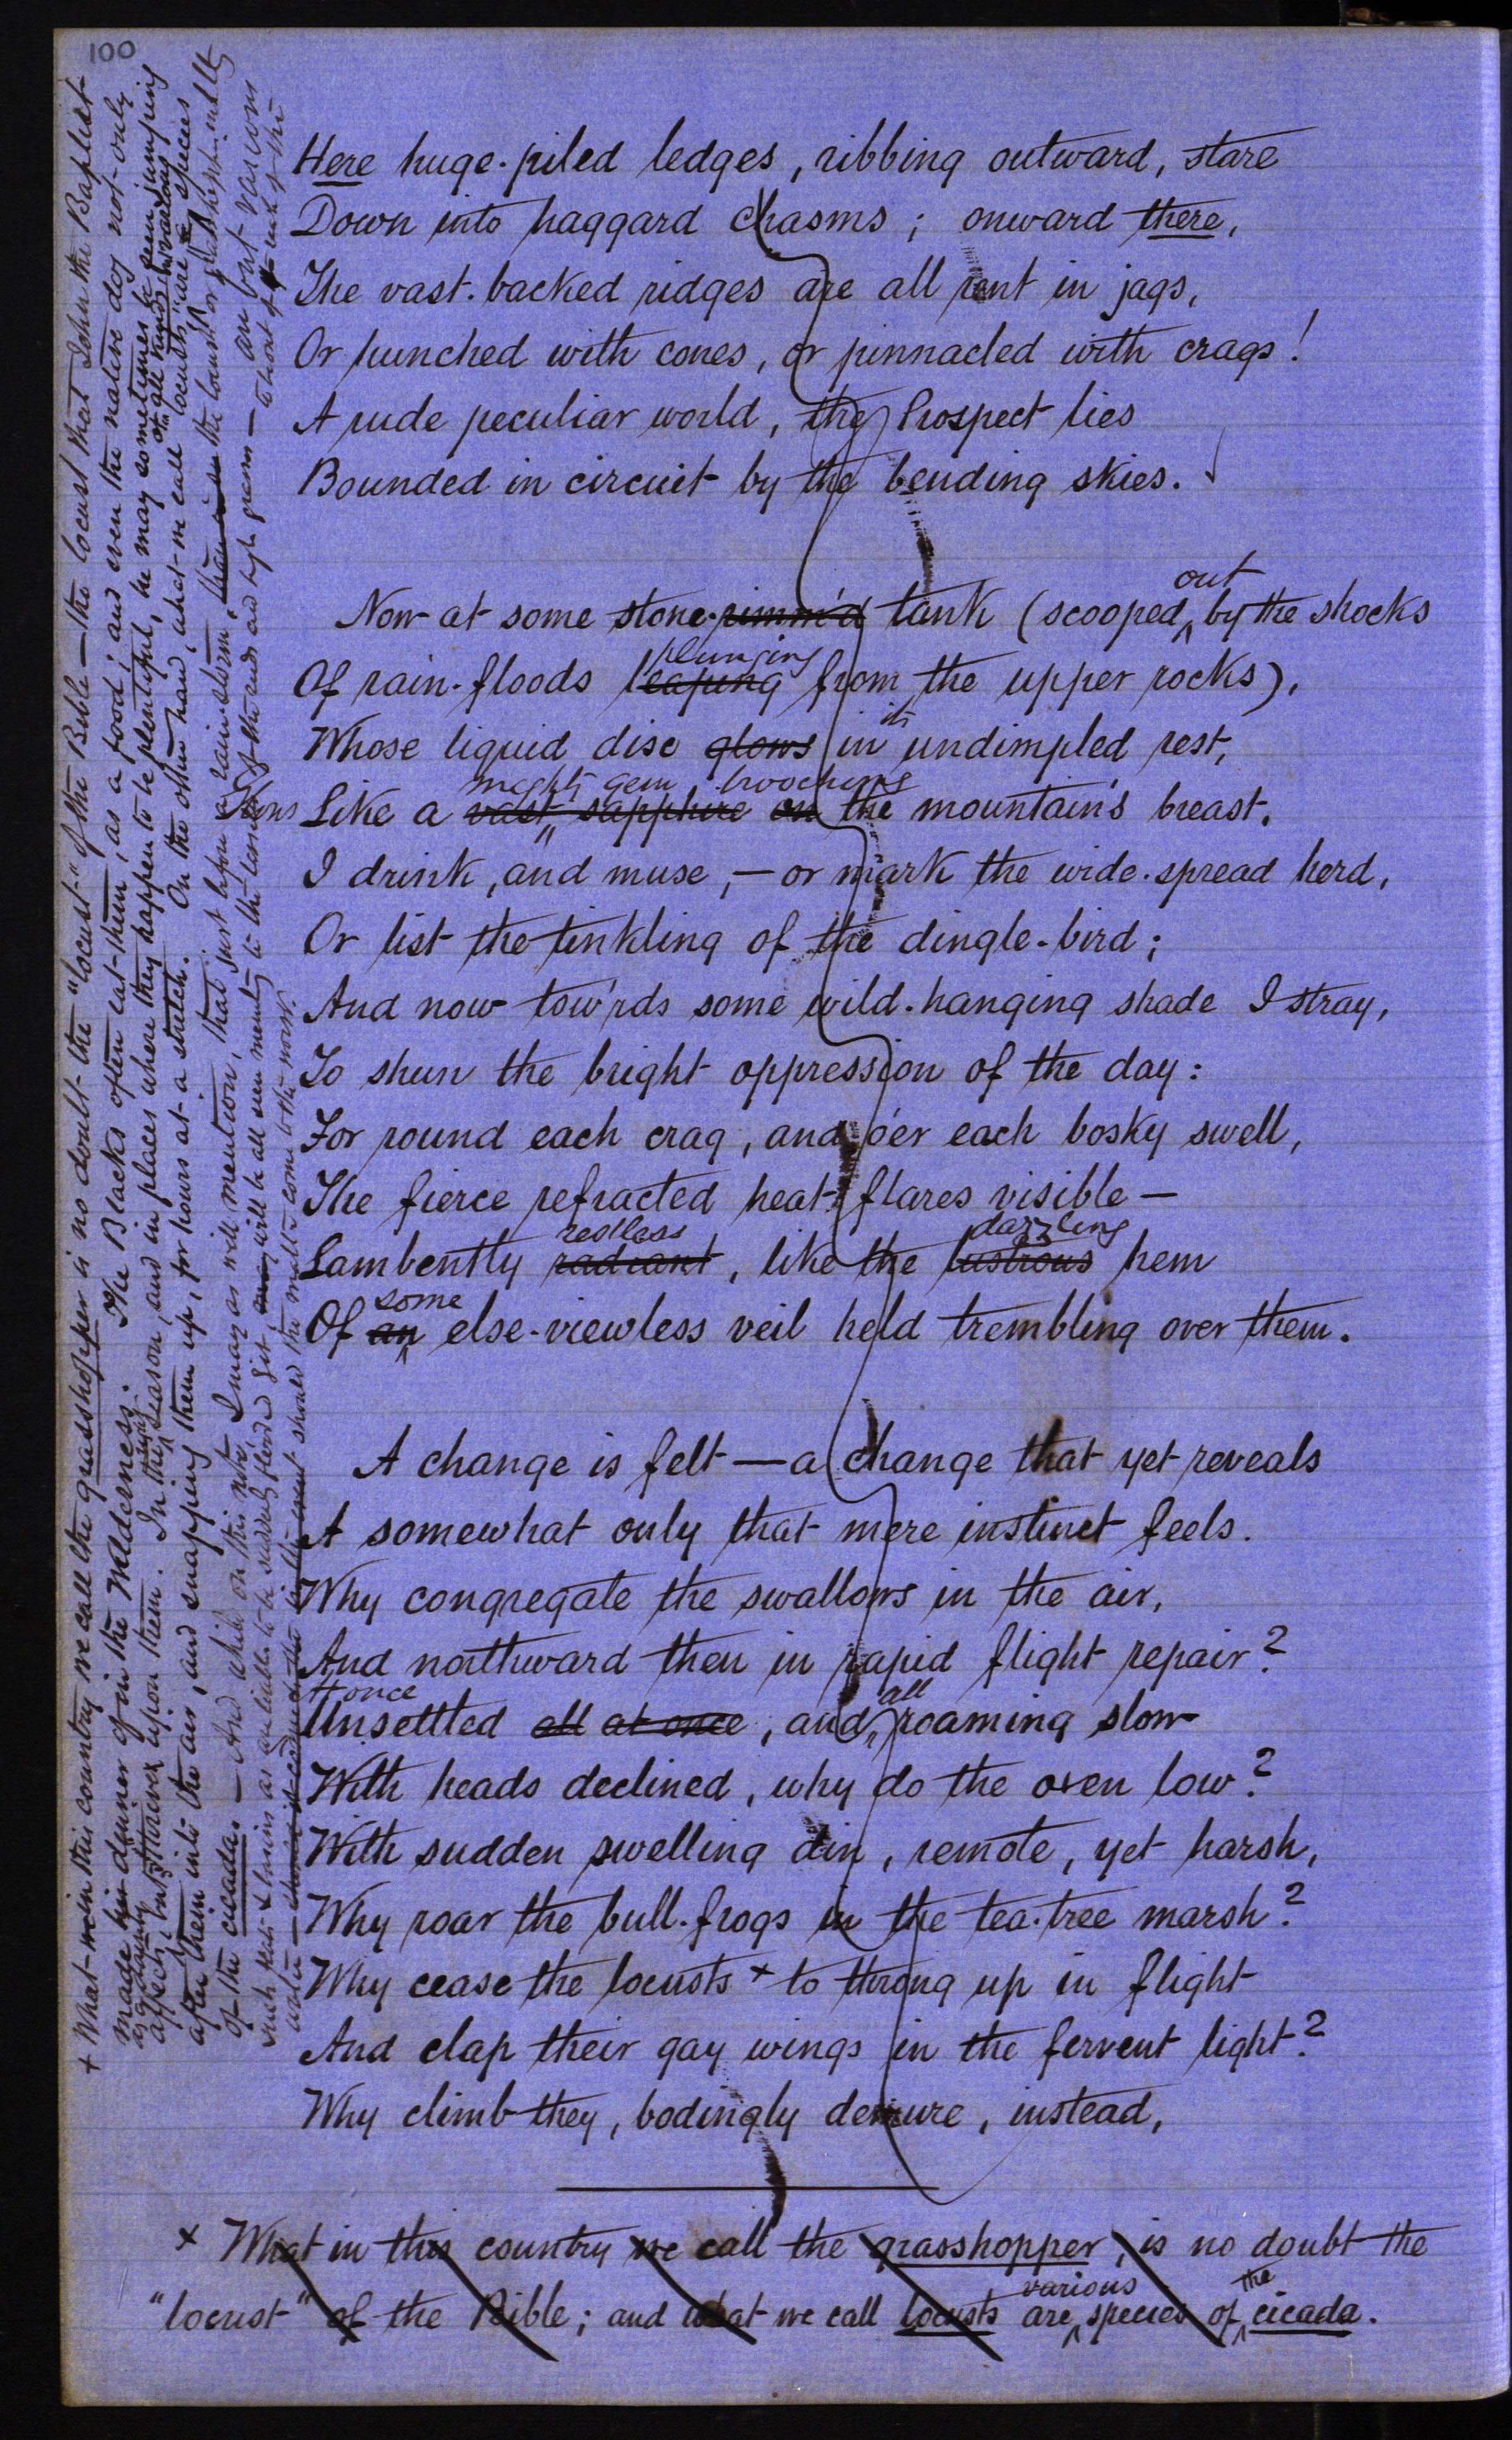 100
Here huge-piled ledges, ribbing outward, stare
Down into haggard chasms; onward there,
The vast-backed ridges are all rent in jags,
Or hunched with cones, or pinnacled with crags!
A rude peculiar world, the Prospect lies
Bounded in circuit by the bending skies.
Now at some stone-rimm'd tank (scooped out by the shocks
Of rain-floods leaping plunging from the upper rocks),
Whose liquid disc glows in its undimpled rest,
Glows Like a vast sapphire on mighty gem brooching the mountain's breast,
I drink, and muse,—or mark the wide-spread herd,
Or list the tinkling of the dingle-bird;
And now tow'rds some wild-hanging shade I stray,
To shun the bright oppression of the day:
For round each crag, and o'er each bosky swell,
The fierce refracted heat flares visible—
Lambently radiant restless, like the lustrous dazzling hem
Of an some else-viewless veil held trembling over them.
A change is felt—a change that yet reveals
A somewhat only that mere instinct feels.
Why congregate the swallows in the air,
And northward then in rapid flight repair?
Unsettled all at once, and all roaming slow
With heads declined, why do the oxen low?
With sudden swelling din, remote, yet harsh,
Why roar the bull-frogs in the tea-tree marsh?
Why cease the locusts + to throng up in flight
And clap their gay wings in the fervent light?
Why climb they, bodingly demure, instead,
+ What in this country we call the grasshopper, is no doubt the
"locust" of the Bible; and what we call locusts are various species of the cicada.
+ What in this country we call the grasshopper is no doubt the "locust" of the Bible—the locust that John the Baptist
made his dinner of in the Wilderness. The Blacks often eat them, as a food; and even the native dog not only
upon them. In the season, and in places where they happen to be plentiful, he may sometimes be seen jumping
after them into the air, and snapping them up, for hours at a stretch. On the other hand, what we call "locusts" are species
of the cicada. — And while on this note, I may as well mention, that just before a rain storm, the locusts